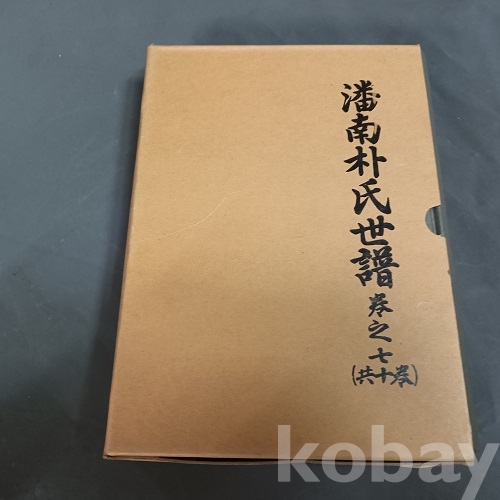 潘南朴氏世譜 卷之七
(共十卷)
kobay